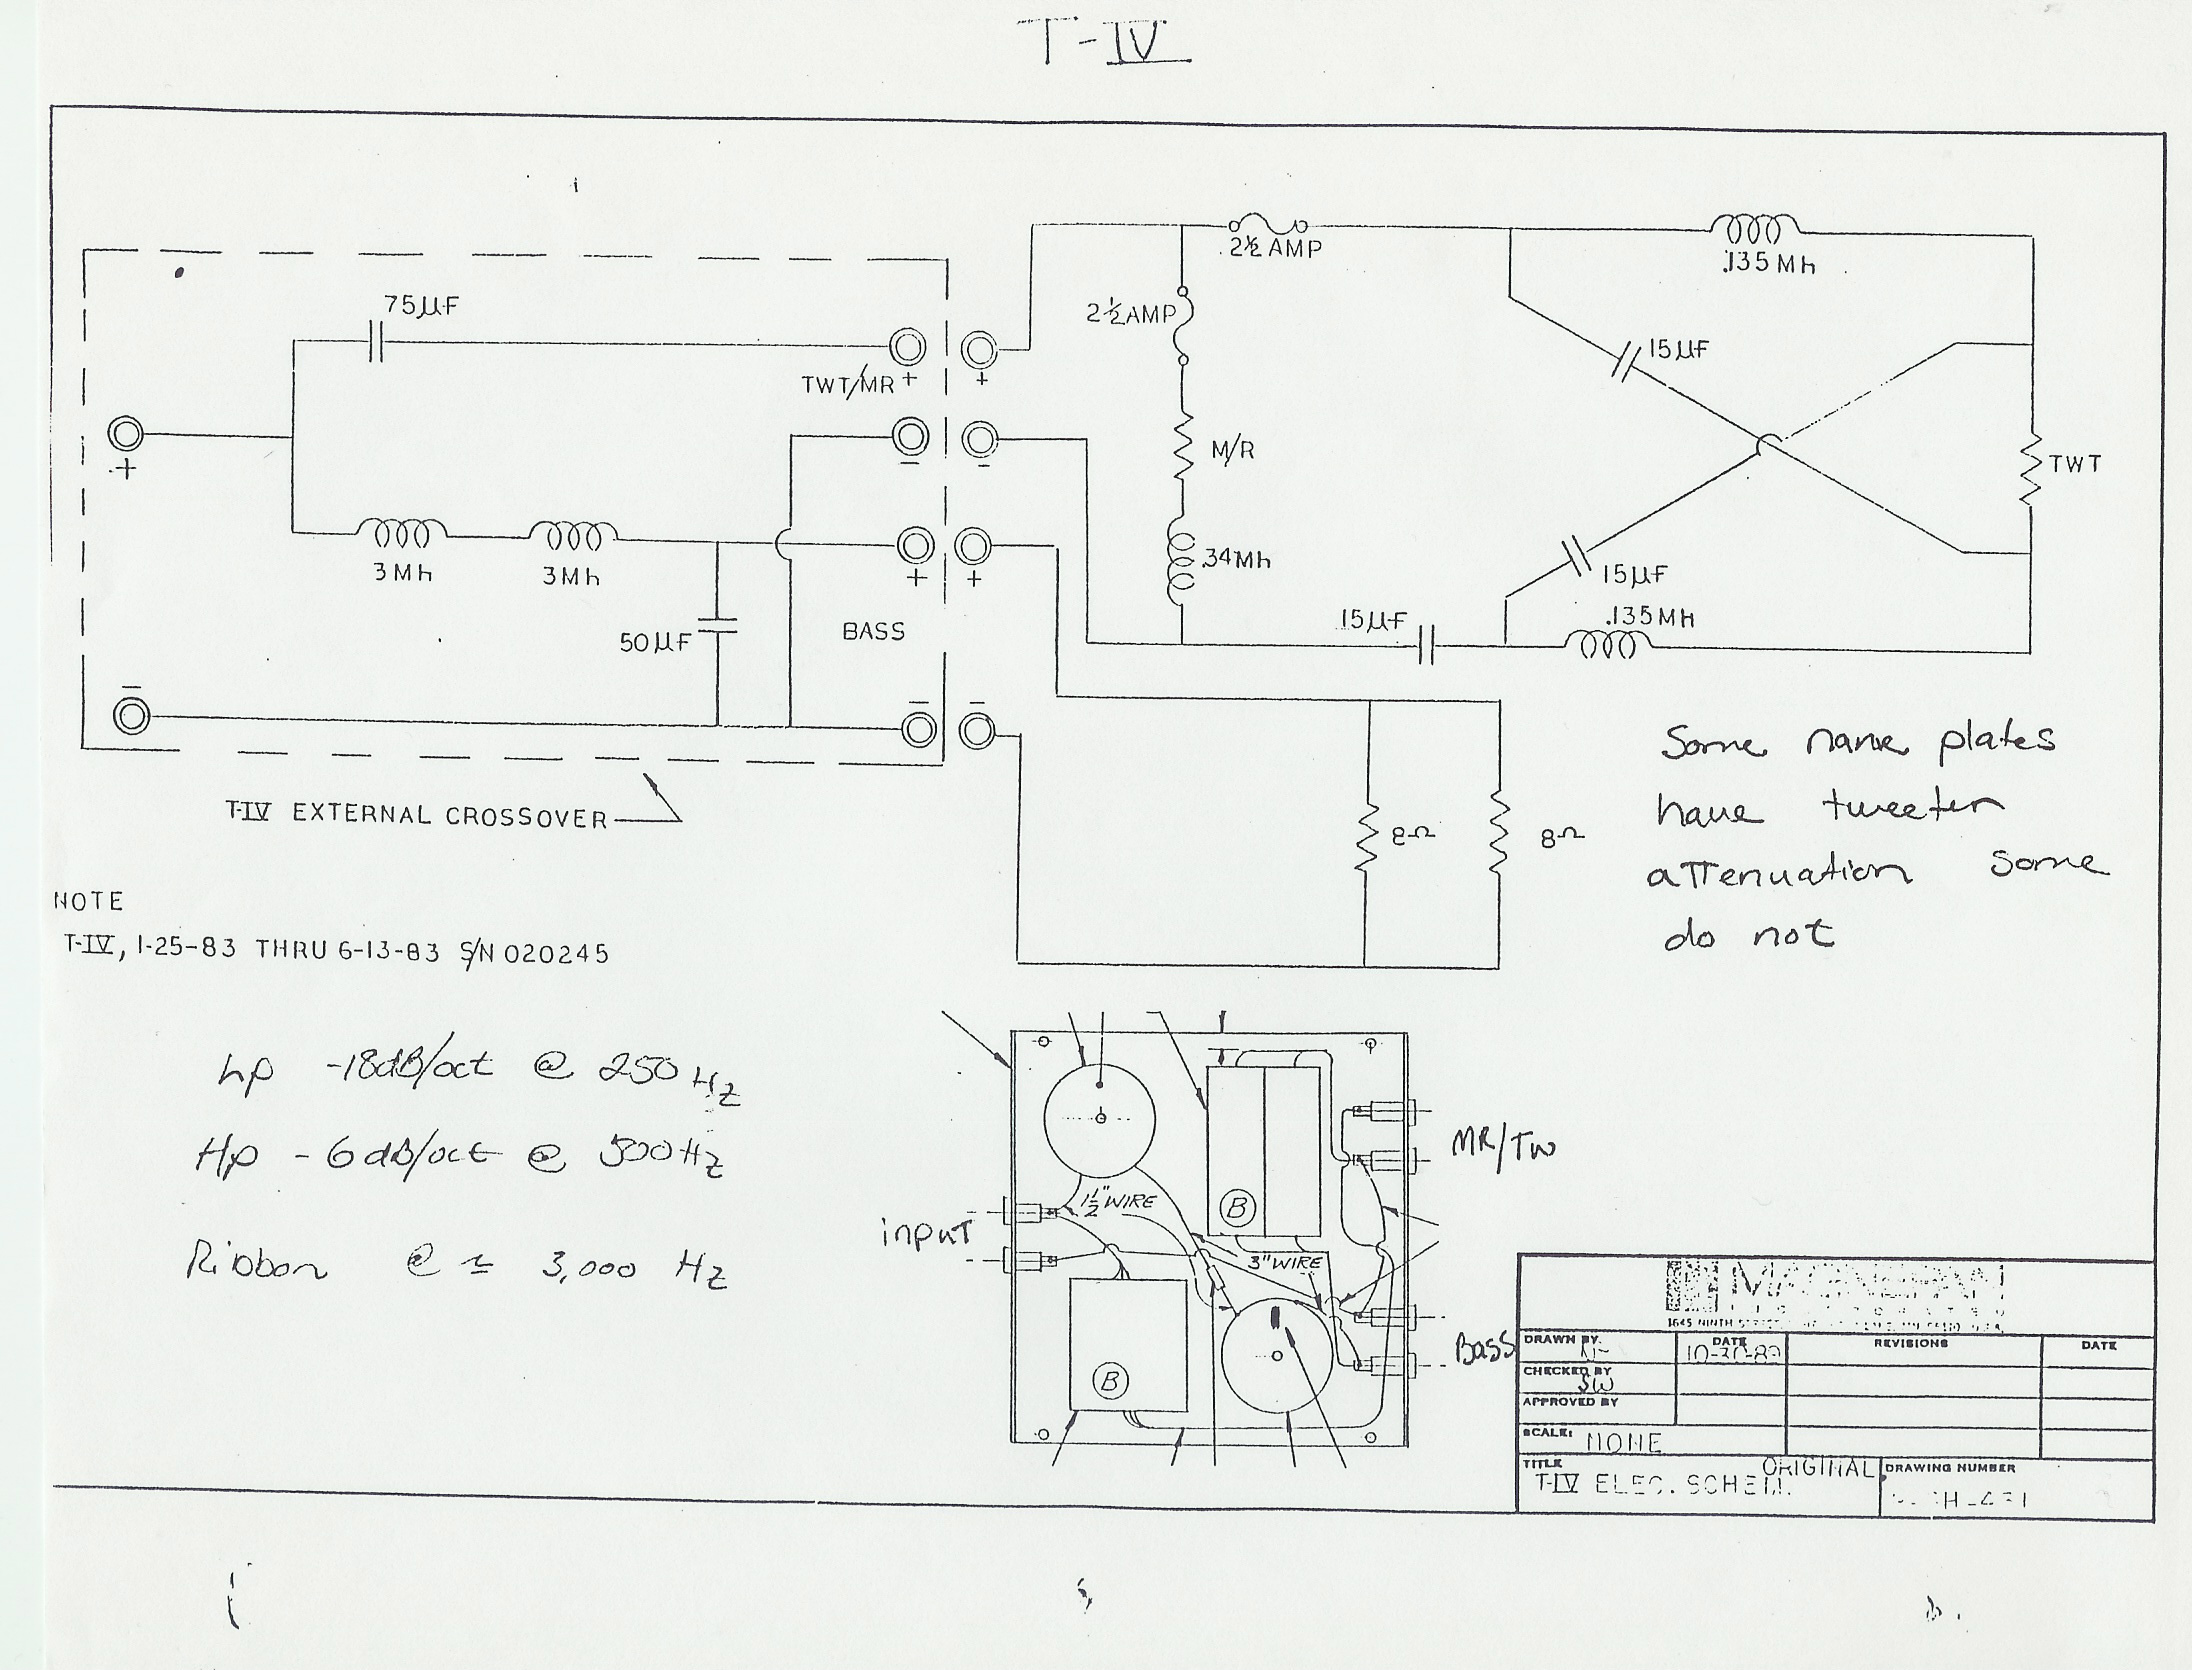 T-IV
2½ AMP
.135 Mh
75µF
2½ AMP
15µF
TWT/MR +
+
+
-
-
M/R
TWT
3 Mh
3 Mh
+
+
.34 Mh
15µF
50µF
BASS
15µF
.135 Mh
-
-
-
T-IV EXTERNAL CROSSOVER
8Ω
8Ω
Some name plates
have tweeter
attenuation some
do not
NOTE
T-IV, 1-25-83 THRU 6-13-83 S/N 020245
Lp -18dB/oct @ 250 Hz
Hp - 6 dB/oct @ 500 Hz
Ribbon @ ≈ 3,000 Hz
MR/TW
1½" WIRE
B
input
3" WIRE
Bass
B
MAGNEPAN
1645 NINTH
DRAWN BY.
DATE
REVISIONS
DATE
CHECKED BY
SW
APPROVED BY
SCALE: NONE
TITLE
ORIGINAL
T-IV ELEC. SCHEM.
DRAWING NUMBER